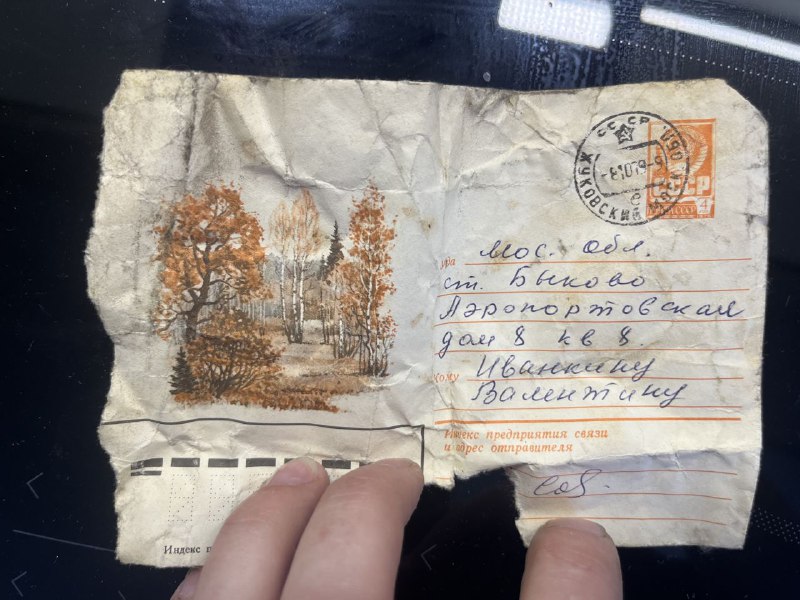 СССР
ЖУКОВСКИЙ МОСК. ОБЛ.
СССР
4
Куда
Мос. обл.
ст. Быково
Аэропортовская
дом 8 кв 8.
Кому
Иванкину
Валентину
Индекс предприятия связи
и адрес отправителя
Индекс п